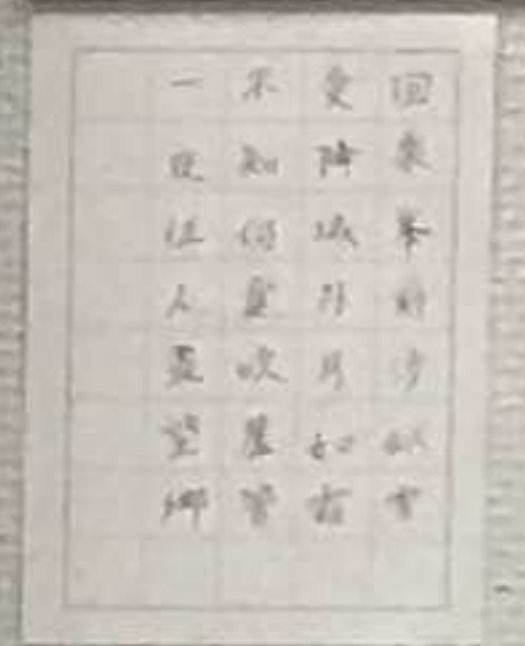 回乐峯前沙似雪
受降城外月如霜
不知何處吹蘆管
一夜征人盡望鄉